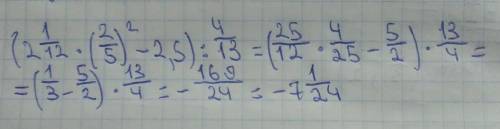 (2 1/12 · (2/5)² - 2,5) : 4/13 = (25/12 · 4/25 - 5/2) · 13/4 =
= (1/3 - 5/2) · 13/4 = - 169/24 = -7 1/24